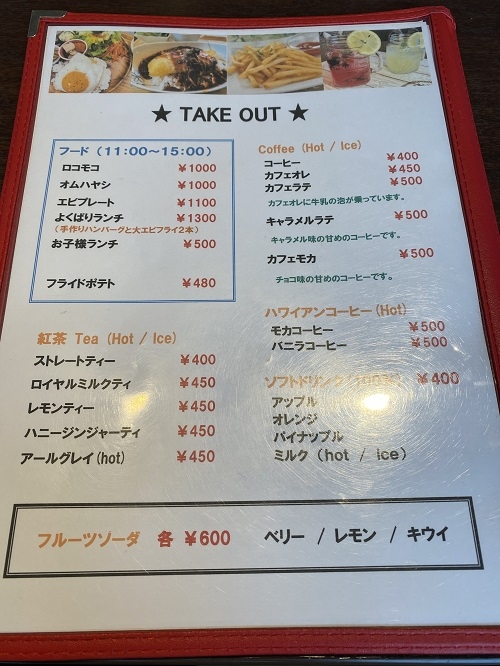 ★ TAKE OUT ★
フード (11:00～15:00)
ロコモコ ¥1000
オムハヤシ ¥1000
エビプレート ¥1100
よくばりランチ ¥1300
(手作りハンバーグと大エビフライ2本)
お子様ランチ ¥500
フライドポテト ¥480
紅茶 Tea (Hot / Ice)
ストレートティー ¥400
ロイヤルミルクティ ¥450
レモンティー ¥450
ハニージンジャーティ ¥450
アールグレイ(hot) ¥450
Coffee (Hot / Ice)
コーヒー ¥400
カフェオレ ¥450
カフェラテ ¥500
カフェオレに牛乳の泡が乗っています。
キャラメルラテ ¥500
キャラメル味の甘めのコーヒーです。
カフェモカ ¥500
チョコ味の甘めのコーヒーです。
ハワイアンコーヒー(Hot)
モカコーヒー ¥500
バニラコーヒー ¥500
ソフトドリンク (100%) ¥400
アップル
オレンジ
パイナップル
ミルク (hot / ice)
フルーツソーダ 各 ¥600 ベリー / レモン / キウイ